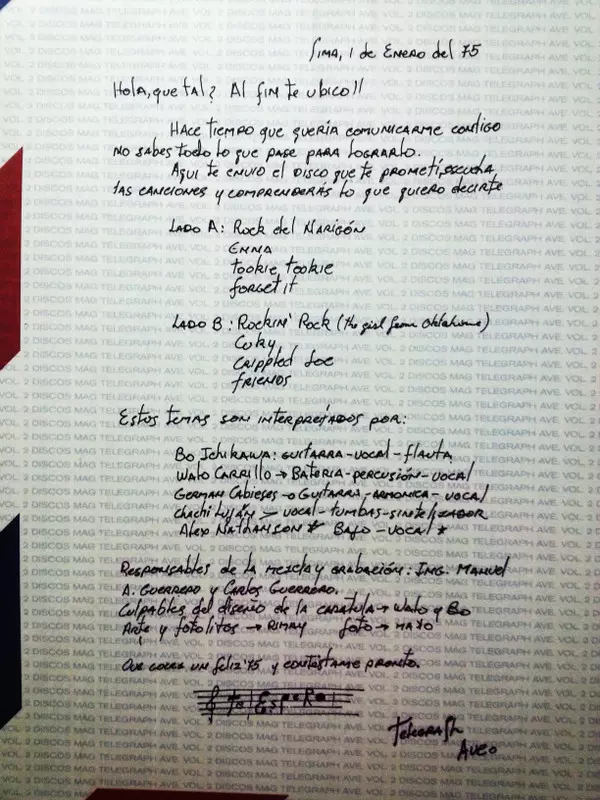 Lima, 1 de Enero del 75
Hola, que tal? Al fin te ubico!!
Hace tiempo que quería comunicarme contigo
no sabes todo lo que pase para lograrlo.
Aqui te envio el disco que te prometí, escucha
las canciones y comprenderás lo que quiero decirte
Lado A: Rock del Narigón
Emma
tookie, tookie
forget it
Lado B: Rockin' Rock (the girl from Oklahoma)
Coky
Crippled Joe
friends
Estos temas son interpretados por:
Bo Ichikawa: guitarra-vocal-flauta
Walo Carrillo → Bateria-percusión-vocal
German Cabieses → Guitarra-armonica-vocal
chachi Luján → vocal-tumbas-sintetizador
Alex Nathanson * Bajo-vocal *
Responsables de la mezcla y grabación: Ing. Manuel
A. Guerrero y Carlos Guerrero.
Culpables del diseño de la caratula → Walo y Bo
Arte y fotolitos → Rimay foto → Mayo
Que un feliz '75 y contestame pronto.
te Espero
Telegraph
Aveo
VOL. 2 DISCOS MAG TELEGRAPH AVE.